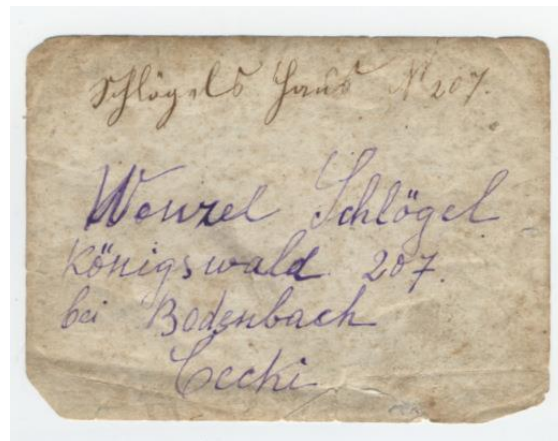 Schlögels Haus № 207.
Wenzel Schlögel
Königswald 207.
bei Bodenbach
Čechi